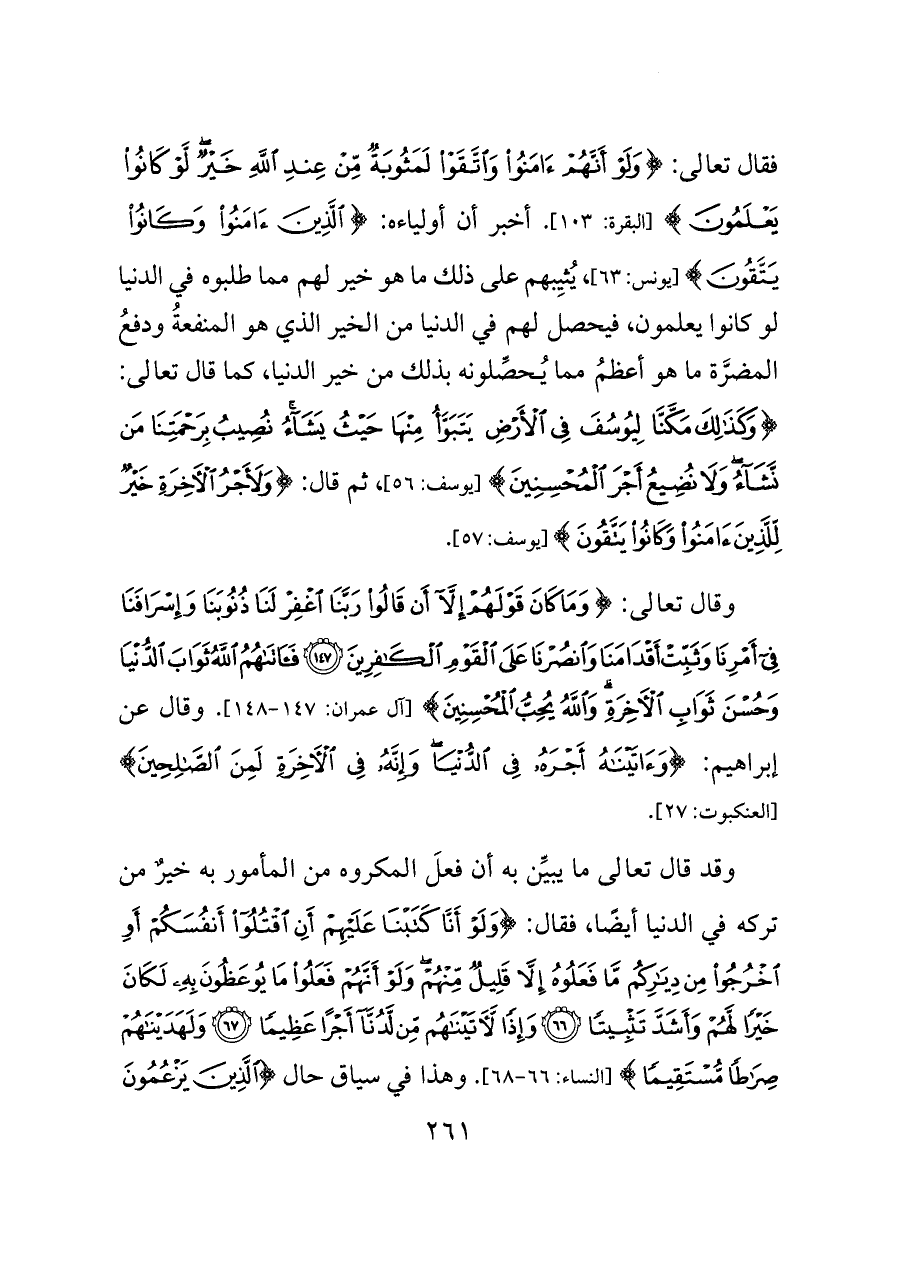 فقال تعالى: ﴿وَلَوْ أَنَّهُمْ ءَامَنُواْ وَٱتَّقَوْاْ لَمَثُوبَةٌ مِّنْ عِندِ ٱللَّهِ خَيْرٌۖ لَّوْ كَانُواْ
يَعْلَمُونَ﴾ [البقرة: ١٠٣]. أخبر أن أولياءه: ﴿ٱلَّذِينَ ءَامَنُواْ وَكَانُواْ
يَتَّقُونَ﴾ [يونس: ٦٣]، يُثِيبهم على ذلك ما هو خير لهم مما طلبوه في الدنيا
لو كانوا يعلمون، فيحصل لهم في الدنيا من الخير الذي هو المنفعةُ ودفعُ
المضرَّة ما هو أعظمُ مما يُحصِّلونه بذلك من خير الدنيا، كما قال تعالى:
﴿وَكَذَٰلِكَ مَكَّنَّا لِيُوسُفَ فِى ٱلْأَرْضِ يَتَبَوَّأُ مِنْهَا حَيْثُ يَشَآءُۚ نُصِيبُ بِرَحْمَتِنَا مَن
نَّشَآءُۖ وَلَا نُضِيعُ أَجْرَ ٱلْمُحْسِنِينَ﴾ [يوسف: ٥٦]، ثم قال: ﴿وَلَأَجْرُ ٱلْأٓخِرَةِ خَيْرٌ
لِّلَّذِينَ ءَامَنُواْ وَكَانُواْ يَتَّقُونَ﴾ [يوسف: ٥٧].
وقال تعالى: ﴿وَمَا كَانَ قَوْلَهُمْ إِلَّآ أَن قَالُواْ رَبَّنَا ٱغْفِرْ لَنَا ذُنُوبَنَا وَإِسْرَافَنَا
فِىٓ أَمْرِنَا وَثَبِّتْ أَقْدَامَنَا وَٱنصُرْنَا عَلَى ٱلْقَوْمِ ٱلْكَٰفِرِينَ ١٤٧ فَـَٔاتَىٰهُمُ ٱللَّهُ ثَوَابَ ٱلدُّنْيَا
وَحُسْنَ ثَوَابِ ٱلْأٓخِرَةِۗ وَٱللَّهُ يُحِبُّ ٱلْمُحْسِنِينَ﴾ [آل عمران: ١٤٧-١٤٨]. وقال عن
إبراهيم: ﴿وَءَاتَيْنَٰهُ أَجْرَهُۥ فِى ٱلدُّنْيَاۖ وَإِنَّهُۥ فِى ٱلْأٓخِرَةِ لَمِنَ ٱلصَّٰلِحِينَ﴾
[العنكبوت: ٢٧].
وقد قال تعالى ما يبيِّن به أن فعلَ المكروه من المأمور به خيرٌ من
تركه في الدنيا أيضًا، فقال: ﴿وَلَوْ أَنَّا كَتَبْنَا عَلَيْهِمْ أَنِ ٱقْتُلُوٓاْ أَنفُسَكُمْ أَوِ
ٱخْرُجُواْ مِن دِيَٰرِكُم مَّا فَعَلُوهُ إِلَّا قَلِيلٌ مِّنْهُمْۖ وَلَوْ أَنَّهُمْ فَعَلُواْ مَا يُوعَظُونَ بِهِۦ لَكَانَ
خَيْرًا لَّهُمْ وَأَشَدَّ تَثْبِيتًا ٦٦ وَإِذًا لَّأٓتَيْنَٰهُم مِّن لَّدُنَّآ أَجْرًا عَظِيمًا ٦٧ وَلَهَدَيْنَٰهُمْ
صِرَٰطًا مُّسْتَقِيمًا﴾ [النساء: ٦٦-٦٨]. وهذا في سياق حال ﴿ٱلَّذِينَ يَزْعُمُونَ
٢٦١